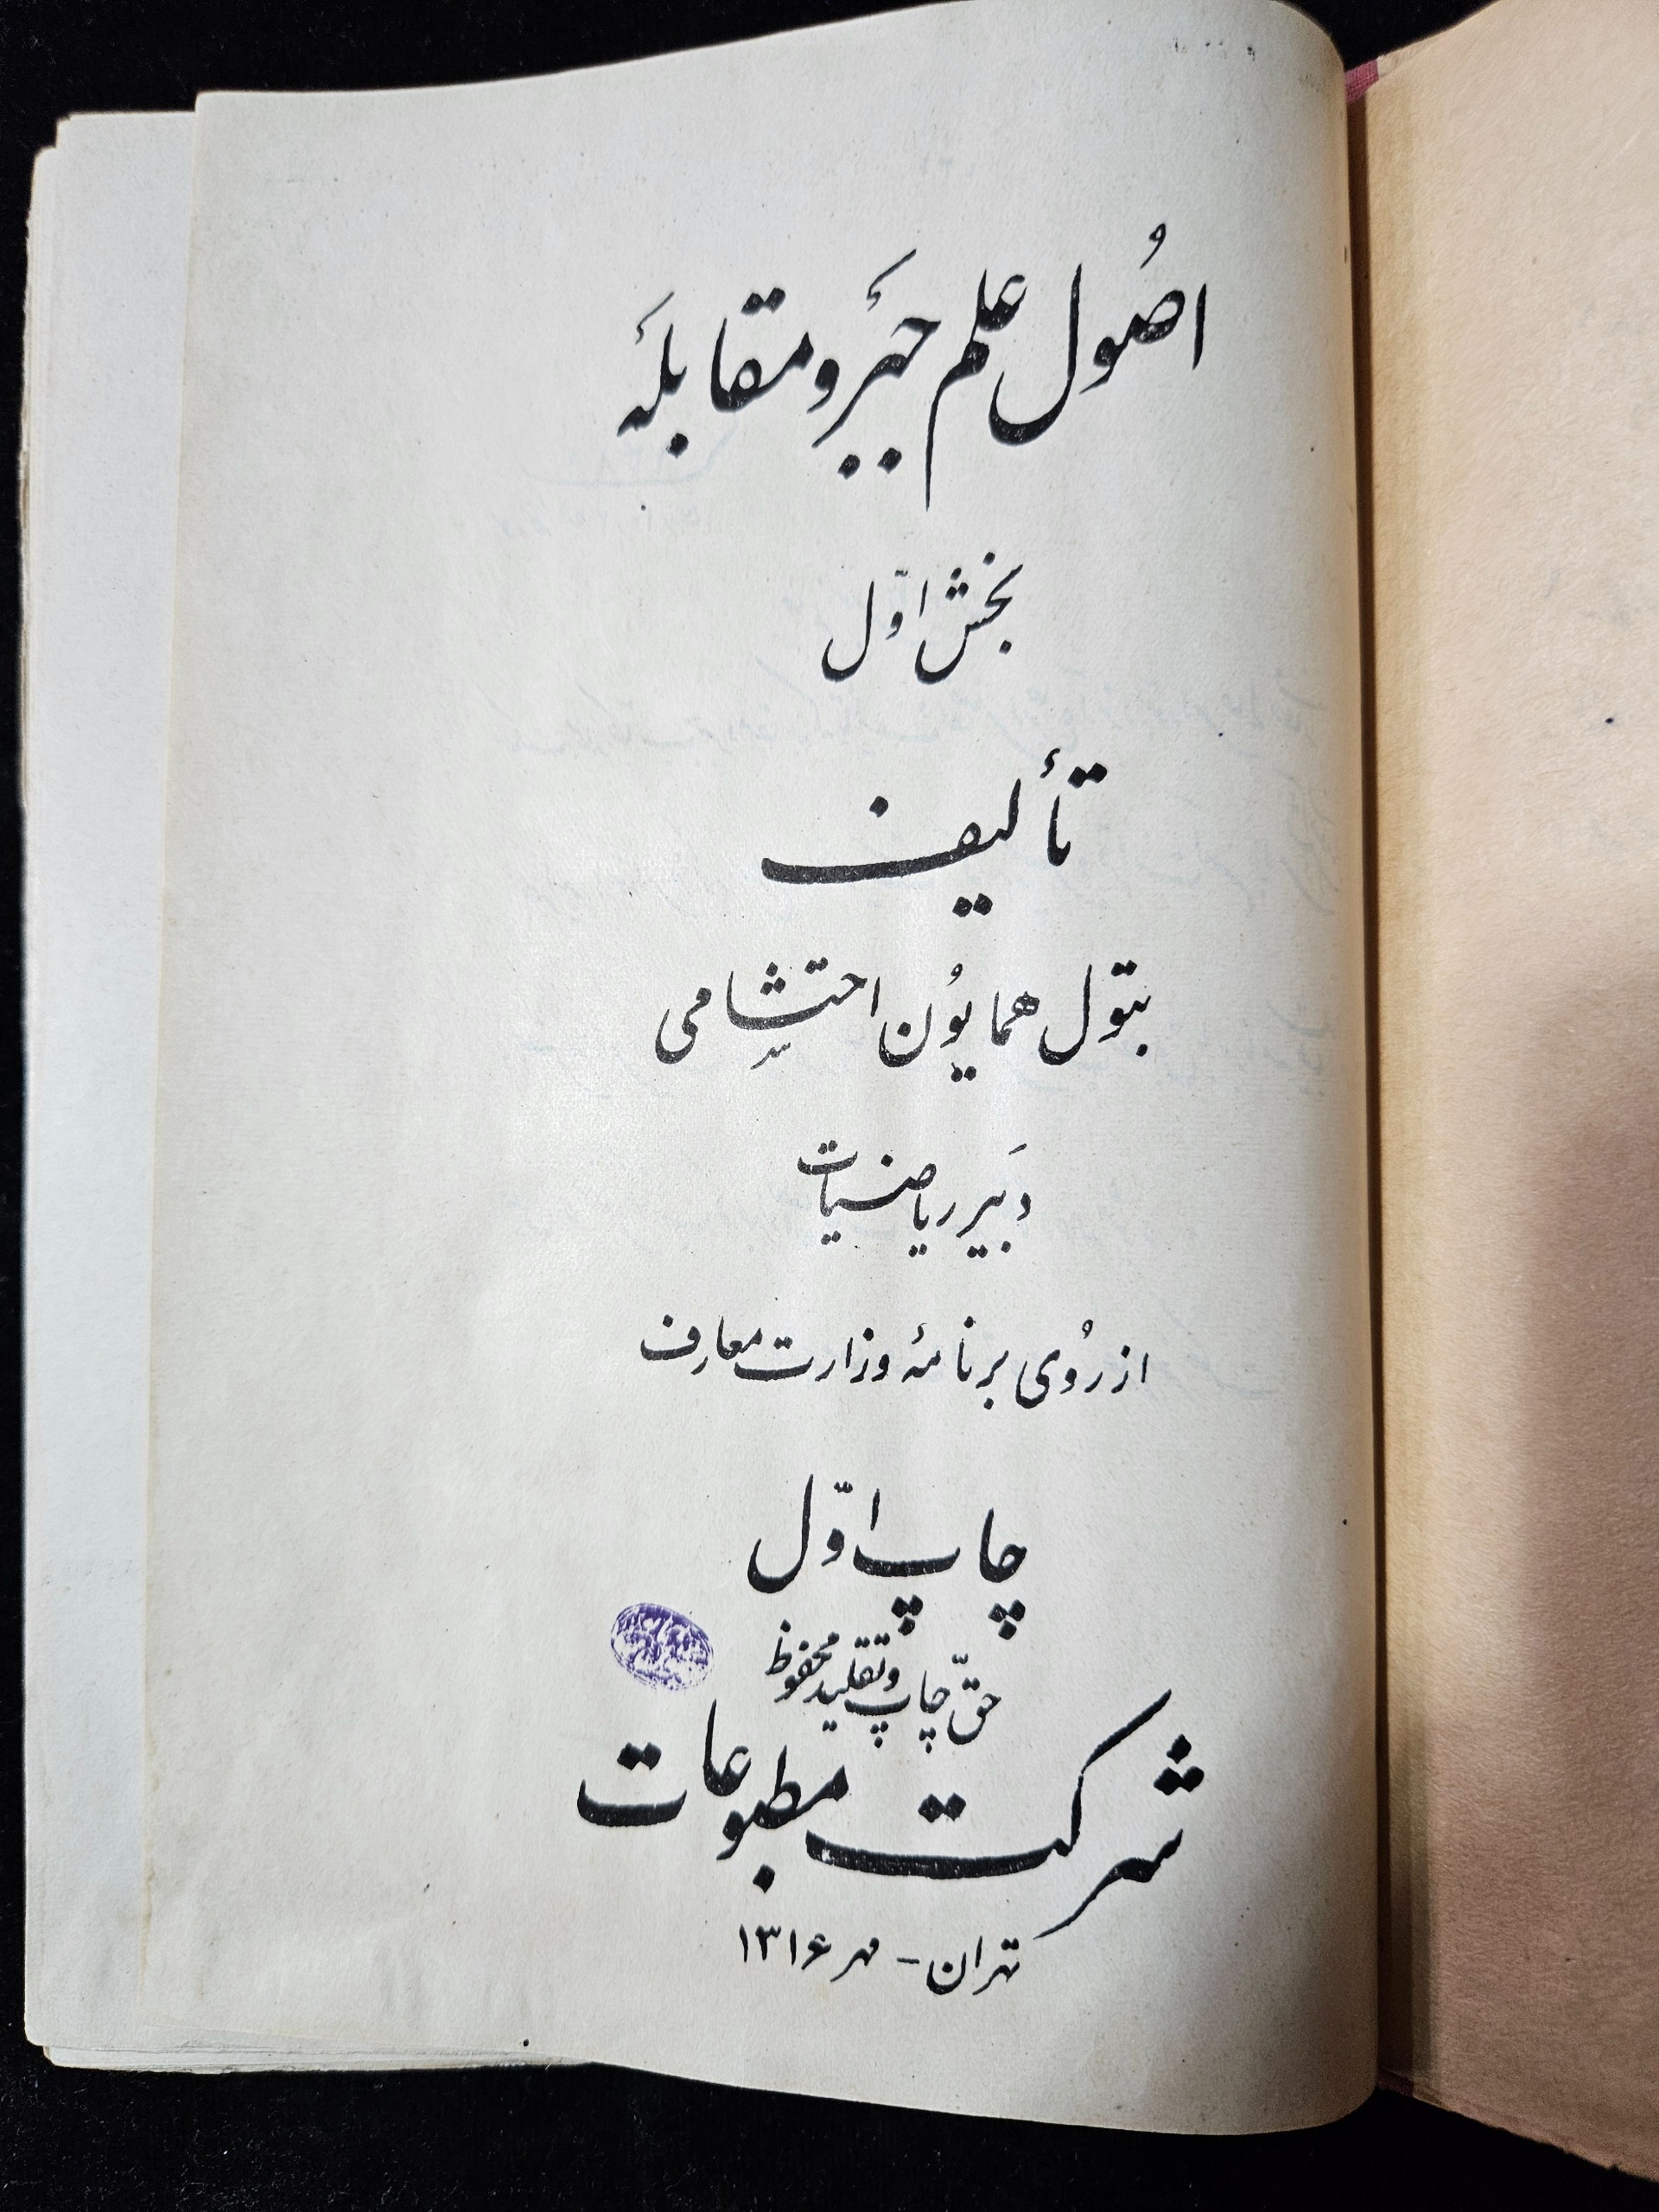 اصُول علم جَبر و مقابلَه
بخش اوّل
تألیف
بتول همایُون احتشِامی
دَبیر ریاضیات
از رُوی برنامهٔ وزارت معارف
چاپ اوّل
حقّ چاپ و تقلید محفوظ
شرکت مطبوعات
تهران - مهر ۱۳۱۶